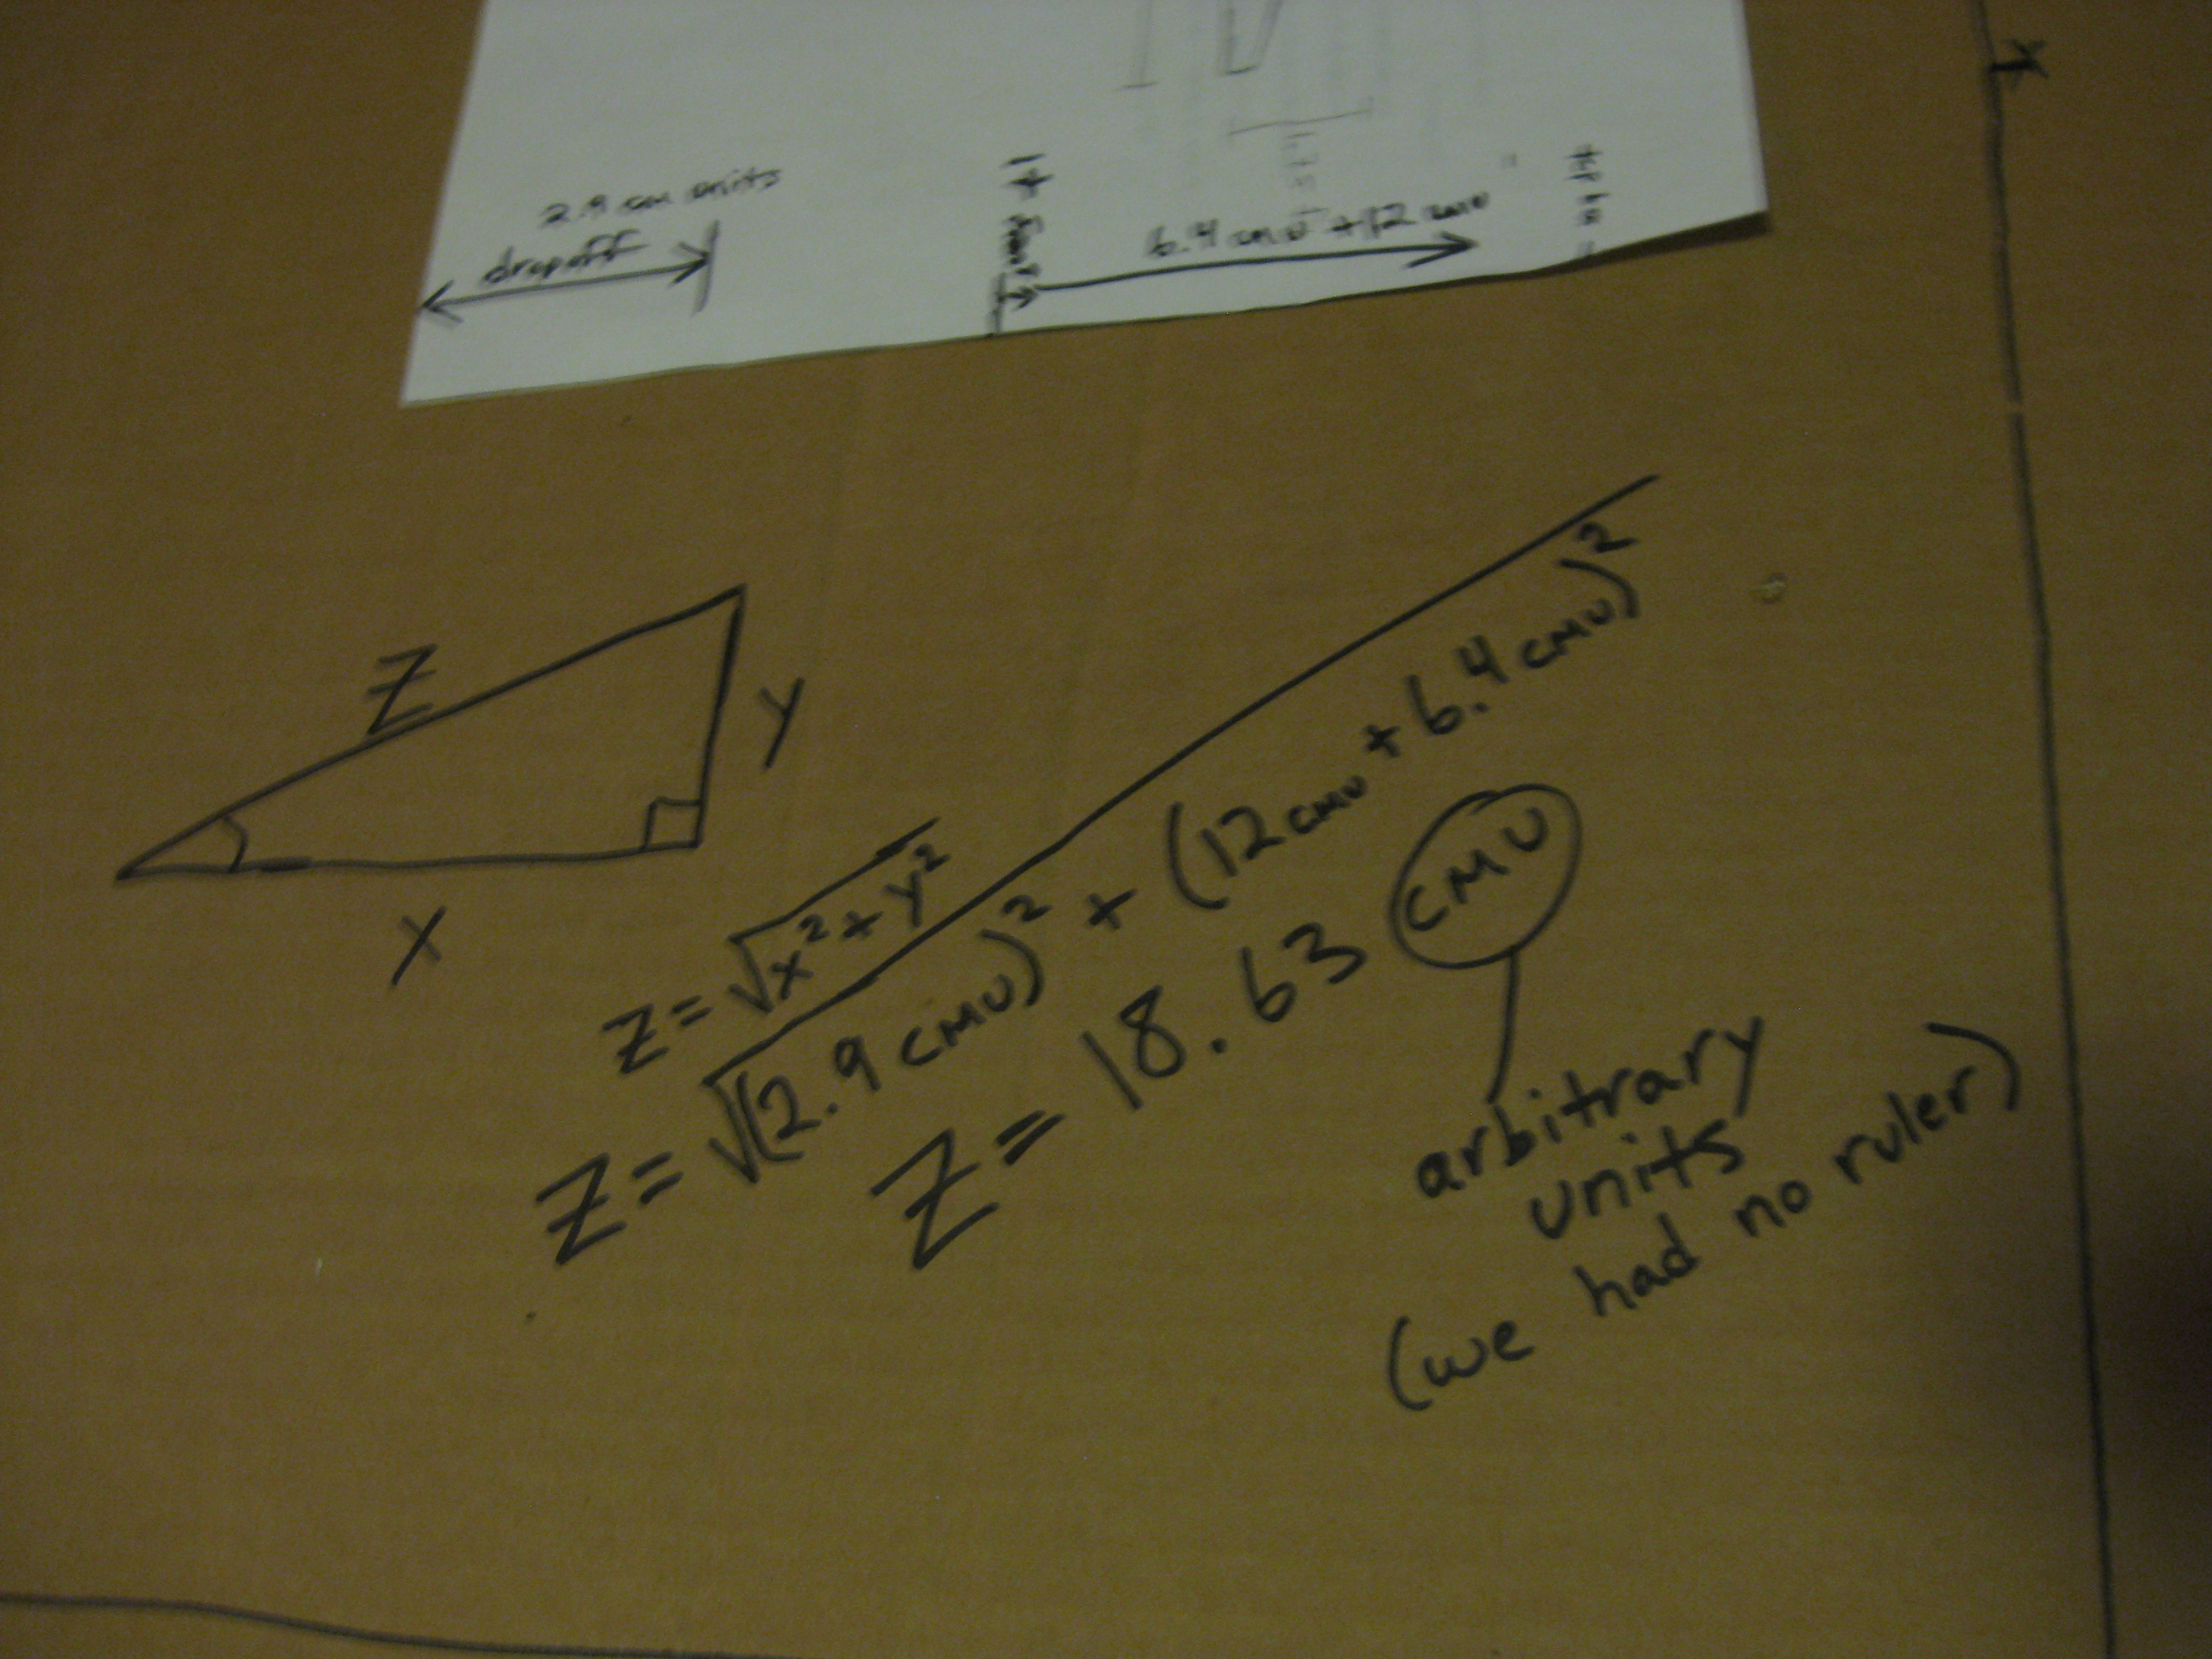 2.9 cm units
dropoff
6.4 cmu + 12 cmu
Z
y
x
Z = √x² + y²
Z = √(2.9 CMU)² + (12 CMU + 6.4 CMU)²
Z = 18.63 CMU
arbitrary
units
(we had no ruler)